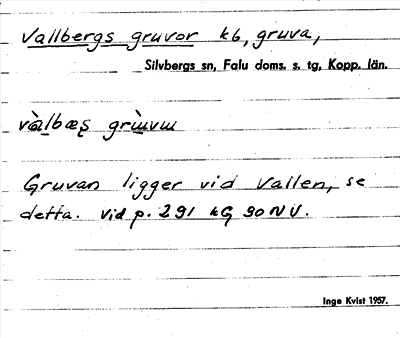 Vallbergs gruvor k6, gruva,
Silvbergs sn, Falu doms. s. tg, Kopp. län.
Gruvan ligger vid Vallen, se
detta. vid p. 291 kG 90 NV.
Inge Kvist 1957.